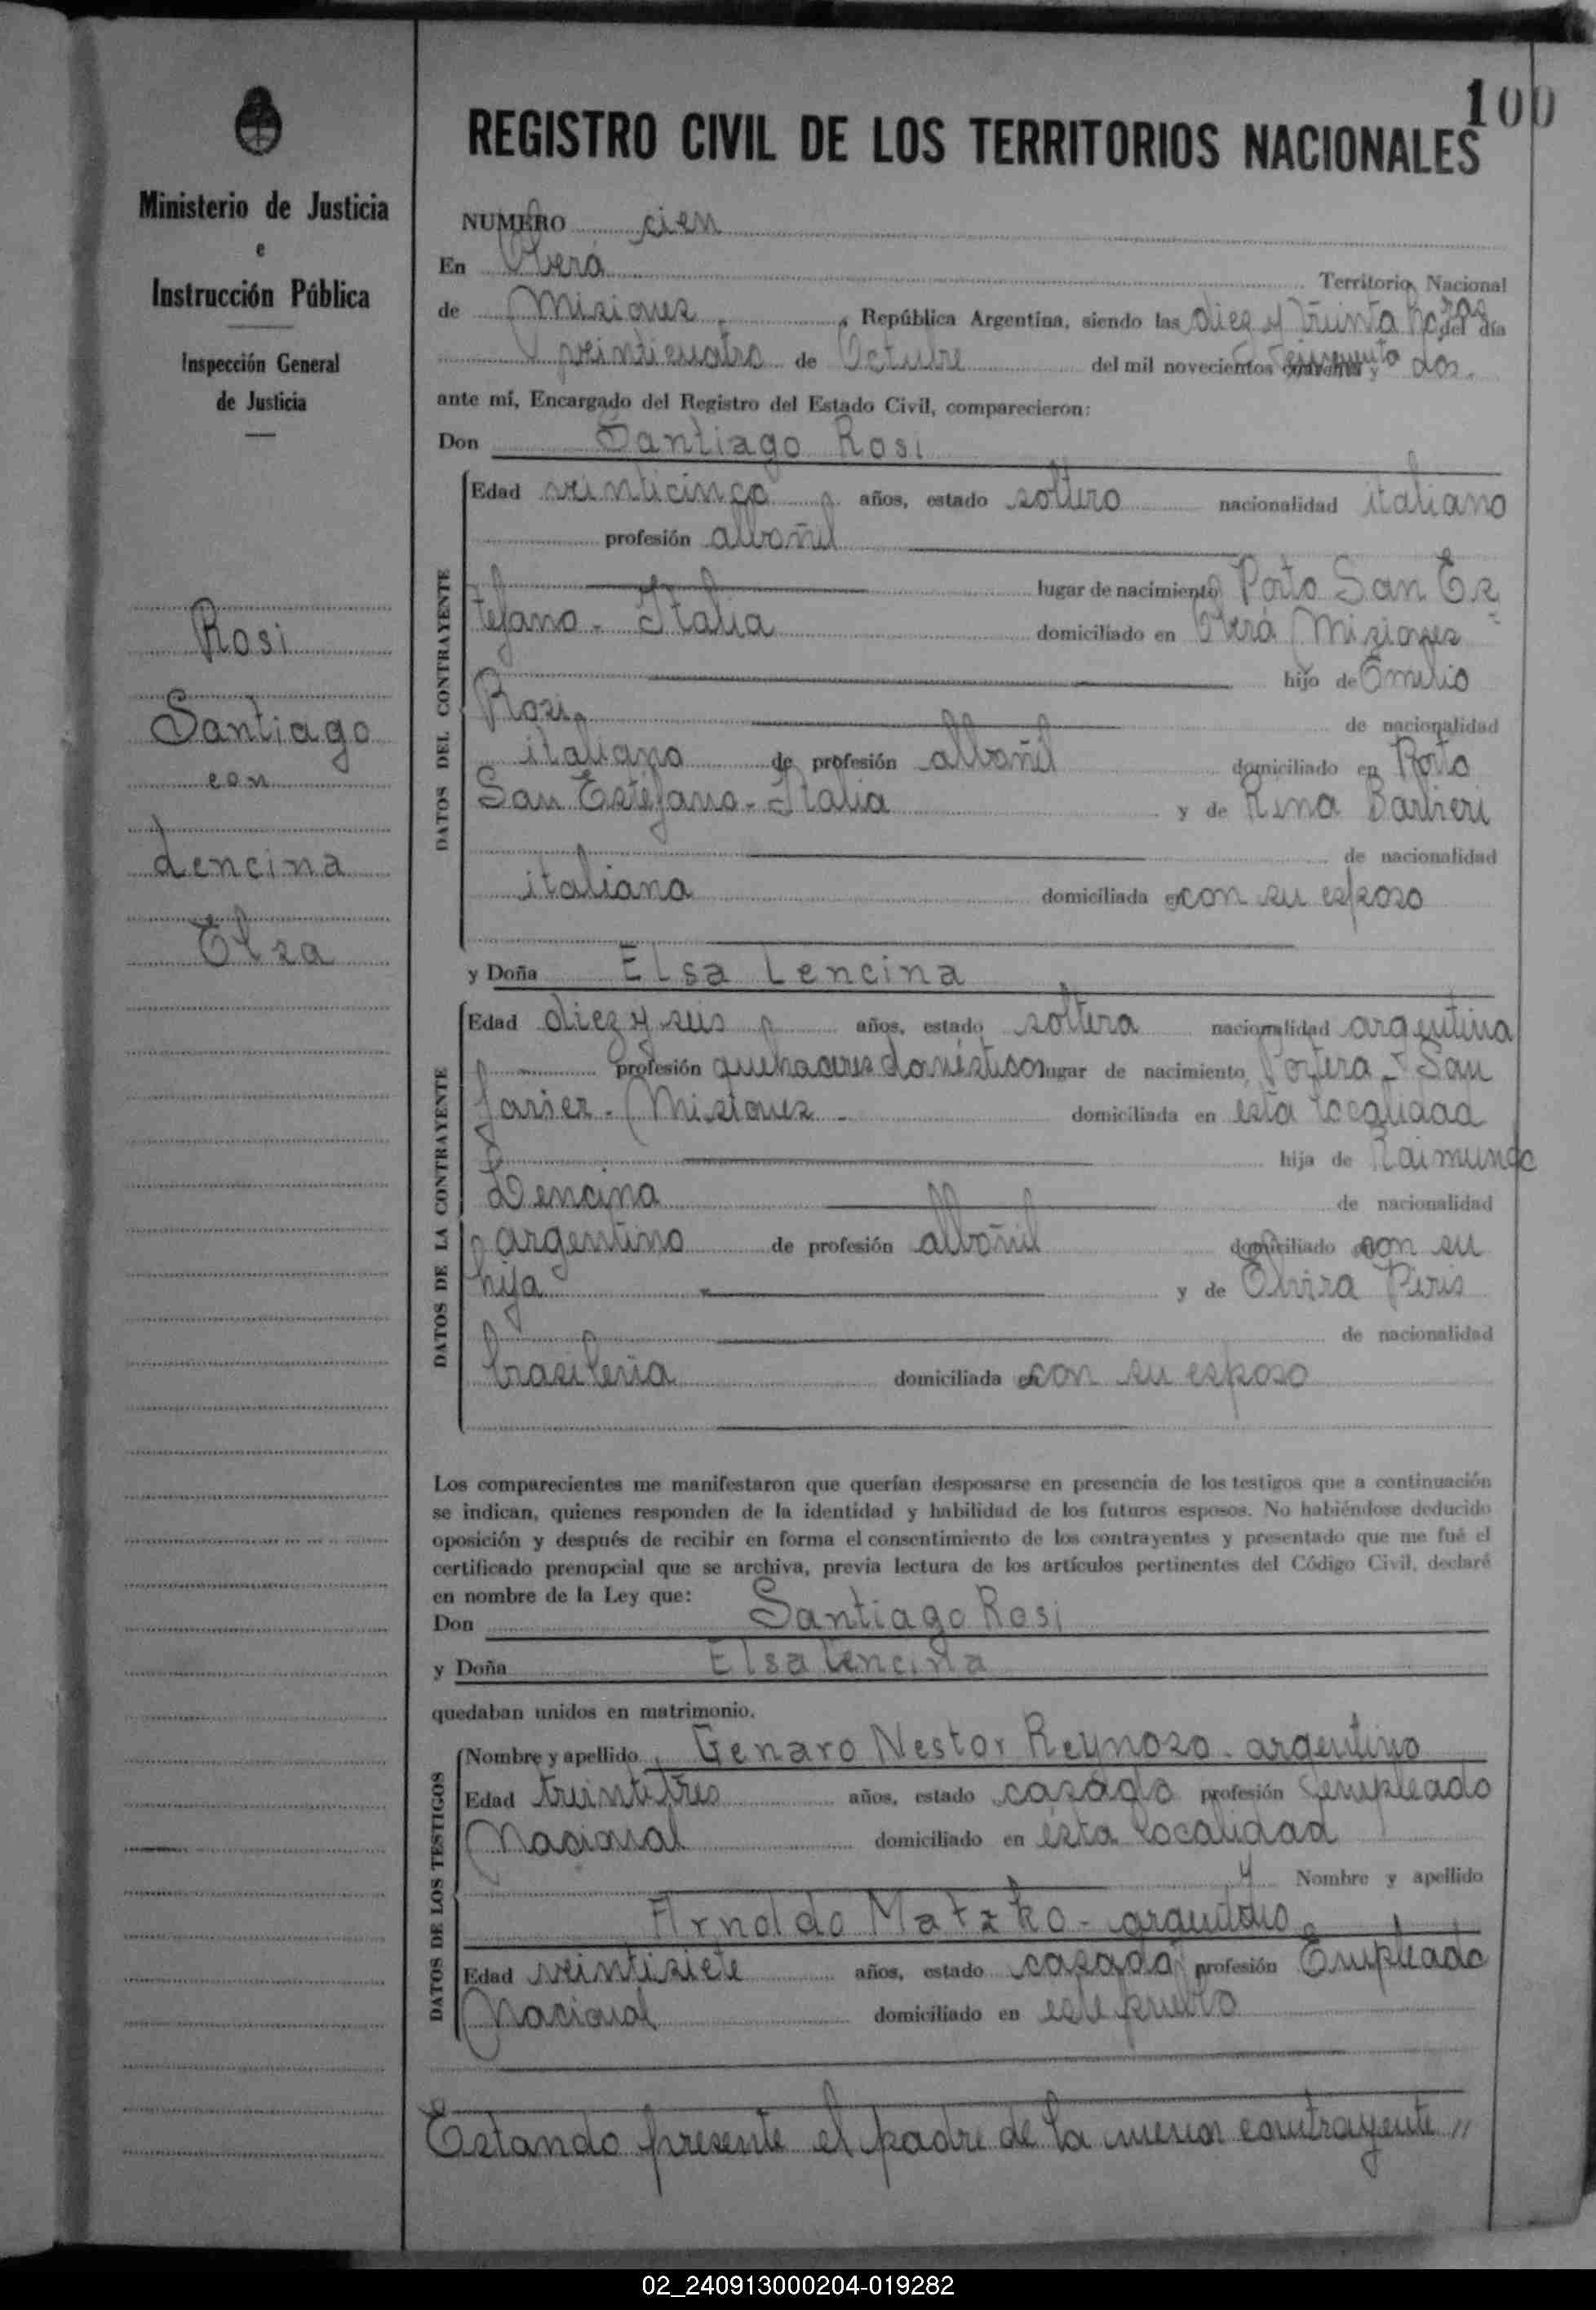 100
REGISTRO CIVIL DE LOS TERRITORIOS NACIONALES
Ministerio de Justicia
e
Instrucción Pública
Inspección General
de Justicia
Rosi
Santiago
con
Lencina
Elsa
NUMERO cien
En Oberá Territorio Nacional
de Misiones, República Argentina, siendo las diez y treinta horas del día
veinticuatro de Octubre del mil novecientos cincuenta y dos.
ante mí, Encargado del Registro del Estado Civil, comparecieron:
Don Santiago Rosi
DATOS DEL CONTRAYENTE
Edad veinticinco años, estado soltero nacionalidad italiano
profesión albañil
lugar de nacimiento Porto San Es
tefano - Italia domiciliado en Oberá Misiones
hijo de Emilio
Rosi de nacionalidad
italiano de profesión albañil domiciliado en Porto
San Estefano - Italia y de Rina Barbieri
de nacionalidad
italiana domiciliada en con su esposo
y Doña Elsa Lencina
DATOS DE LA CONTRAYENTE
Edad diez y seis años, estado soltera nacionalidad argentina
profesión quehaceres domésticos lugar de nacimiento Portera - San
Javier - Misiones - domiciliada en esta localidad
hija de Raimundo
Lencina de nacionalidad
argentino de profesión albañil domiciliado con su
hija y de Elvira Piris
de nacionalidad
brasileña domiciliada en con su esposo
Los comparecientes me manifestaron que querían desposarse en presencia de los testigos que a continuación
se indican, quienes responden de la identidad y habilidad de los futuros esposos. No habiéndose deducido
oposición y después de recibir en forma el consentimiento de los contrayentes y presentado que me fué el
certificado prenupcial que se archiva, previa lectura de los artículos pertinentes del Código Civil, declaré
en nombre de la Ley que:
Don Santiago Rosi
y Doña Elsa Lencina
quedaban unidos en matrimonio.
DATOS DE LOS TESTIGOS
Nombre y apellido Genaro Nestor Reynoso - argentino
Edad treintitres años, estado casado profesión Empleado
Nacional domiciliado en ésta localidad
y Nombre y apellido
Arnoldo Matzko - argentino
Edad veintisiete años, estado casado profesión Empleado
Nacional domiciliado en este pueblo
Estando presente el padre de la menor contrayente //
02_240913000204-019282